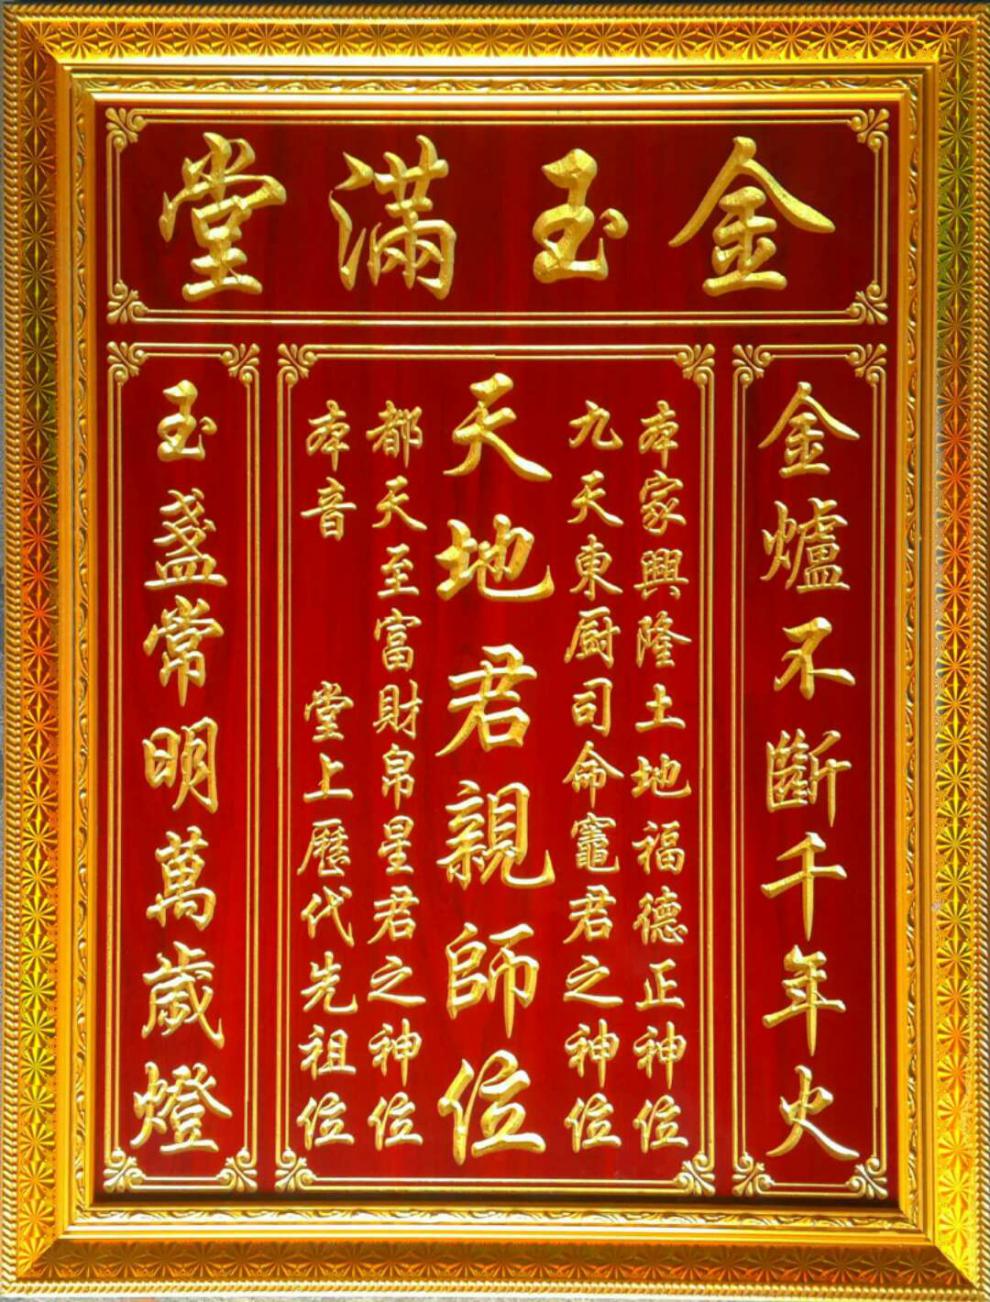 金玉滿堂
金爐不斷千年火
本家興隆土地福德正神位
九天東厨司命竈君之神位
天地君親師位
都天至富財帛星君之神位
本音 堂上歷代先祖位
玉盞常明萬歲燈